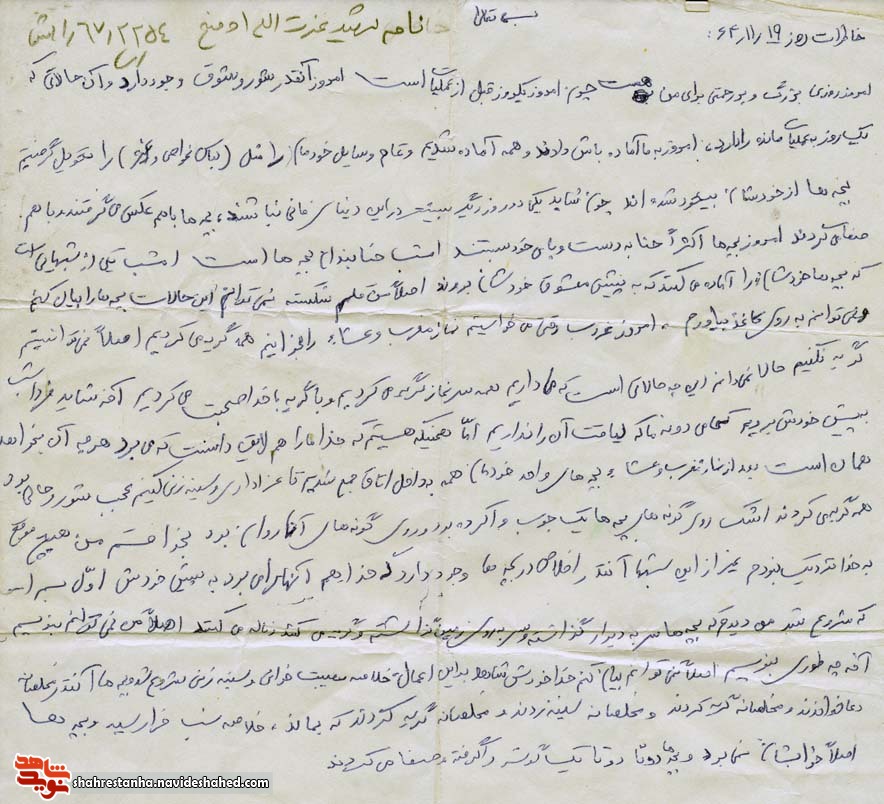 بسمه تعالی
نامه شهید عزت الله
خاطرات روز ۱۹/۱۱/۶۴:
امروز روزی بزرگ و پر رحمتی برای من هست چون امروز یکروز قبل از عملیات است امروز آنقدر شور و شوق وجود دارد و آن حالاتی که
یک روز به عملیات مانده را دارد، امروز به ما آماده باش دادند و همه آماده شدیم و تمام وسایل خودمان را مثل (لباس غواصی و غیره) را تحویل گرفتیم
بچه ها از خودشان بیخود شده اند چون شاید یکی دو روز دیگر بیشتر در این دنیای فانی نباشند، بچه ها باهم عکس می گرفتند و باهم
صفا می کردند امروز بچه ها اکثراً حنا به دست و پای خود بستند امشب حنابندان بچه ها است امشب یکی از شبهائی است
که بچه ها خودشان را آماده می کنند که به پیش معشوق خودشان بروند اصلاً من قلم شکسته نمی توانم این حالات بچه ها را بیان کنم
و نمی توانم به روی کاغذ بیاورم، امروز غروب وقتی می خواستیم نماز مغرب و عشاء را بخوانیم همه گریه می کردیم اصلاً نمی توانستیم
گریه نکنیم حالا نمی دانم این چه حالاتی است که ما داریم همه سر نماز گریه می کردیم و با گریه با خدا صحبت می کردیم آخه شاید فردا شب
پیش خودش برویم گرچه ما که لیاقت آن را نداریم امّا همینکه هستیم که خدا ما را هم لایق دانست که می برد هر چه آن بخواهد
همان است بعد از نماز مغرب و عشاء بچه های واحد خودمان همه به داخل اتاق جمع شدیم تا عزاداری و سینه زنی کنیم عجب شور و حالی بود
همه گریه می کردند اشک روی گونه های بچه ها یک جوب وا کرده بود و روی گونه های آنها روان بود بخدا قسم من هیچ موقع
به خدا نزدیک نبودم غیر از این شبها آنقدر اخلاص در بچه ها وجود دارد که خدا هم آنها را می برد به پیش خودش اوّل
که شروع شد من دیدم که بچه ها سر به دیوار گذاشته و سر به روی زمین گذاشته و گریه می کنند و ناله می کنند اصلاً من نمی توانم بنویسم
آخه چه طوری بنویسم اصلاً نمی توانم بیان کنم خدا خودش شاهد بر این اعمال، خلاصه مصیبت خوانی و سینه زنی شروع شد و بچه ها آنقدر مخلصانه
دعا خواندند و مخلصانه گریه کردند و مخلصانه سینه زدند و مخلصانه گریه کردند که بماند، خلاصه شب فرا رسید و بچه ها
اصلاً خوابشان نمی برد و بچه ها دوتا دوتا یک گوشه را گرفته و صفا می کردند
نوید شاهد
shahrestanha.navideshahed.com